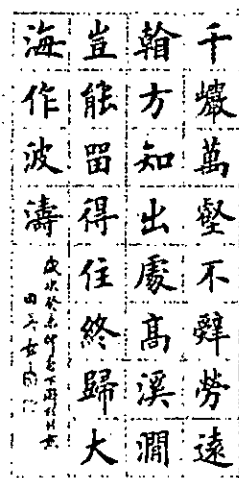 千巖萬壑不辭勞遠
翰方知出處高溪澗
豈能留得住終歸大
海作波濤
歲次癸未
田英章